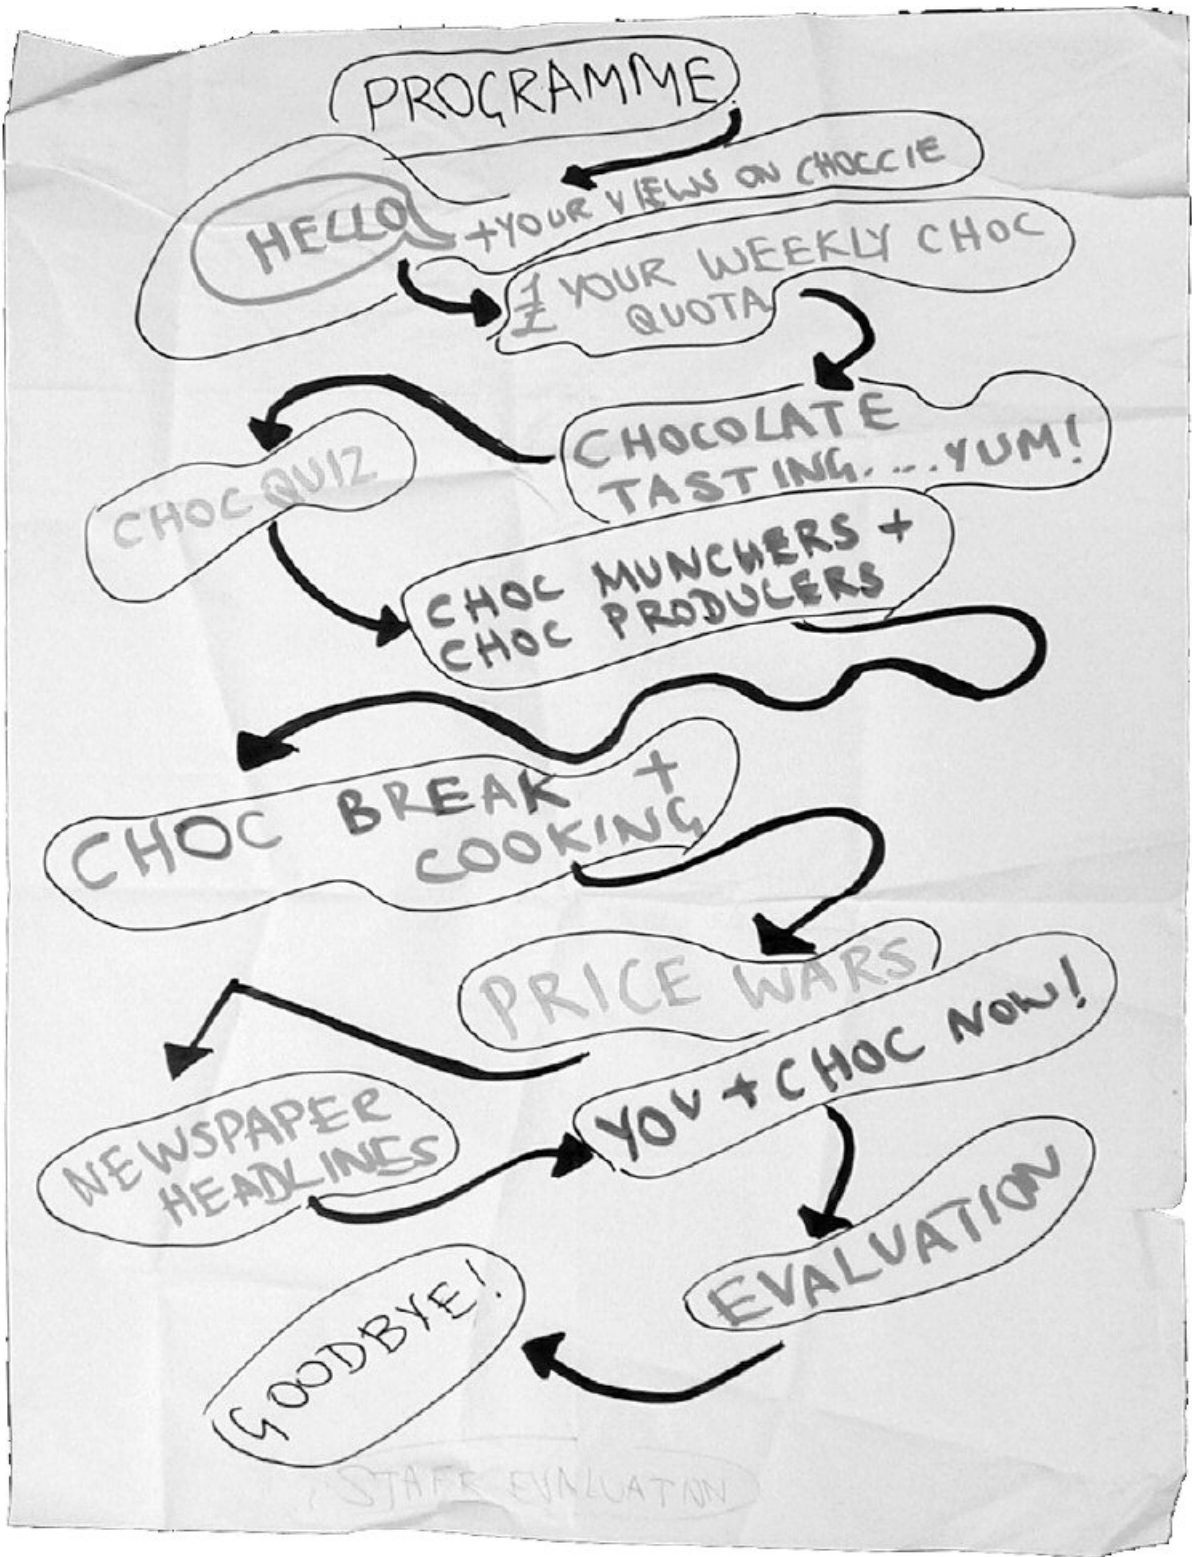 PROGRAMME
HELLO
+YOUR VIEWS ON CHOCCIE
£ YOUR WEEKLY CHOC
QUOTA
CHOCOLATE
TASTING....YUM!
CHOC QUIZ
CHOC MUNCHERS +
CHOC PRODUCERS
CHOC BREAK +
COOKING
PRICE WARS
NEWSPAPER
HEADLINES
YOU + CHOC NOW!
EVALUATION
GOODBYE!
STAFF EVALUATON